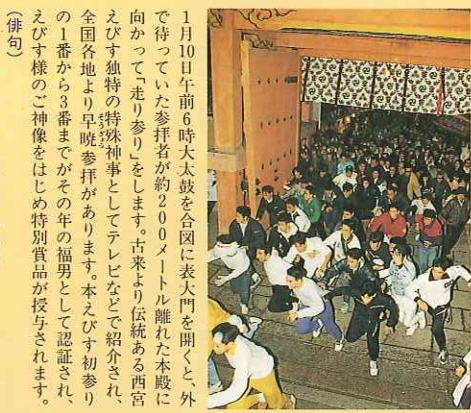 1月10日午前6時大太鼓を合図に表大門を開くと、外
で待っていた参拝者が約200メートル離れた本殿に
向かって「走り参り」をします。古来より伝統ある西宮
えびす独特の特殊神事としてテレビなどで紹介され、
全国各地より早暁参拝があります。本えびす初参り
の1番から3番までがその年の福男として認証され、
えびす様のご神像をはじめ特別賞品が授与されます。
(俳句)